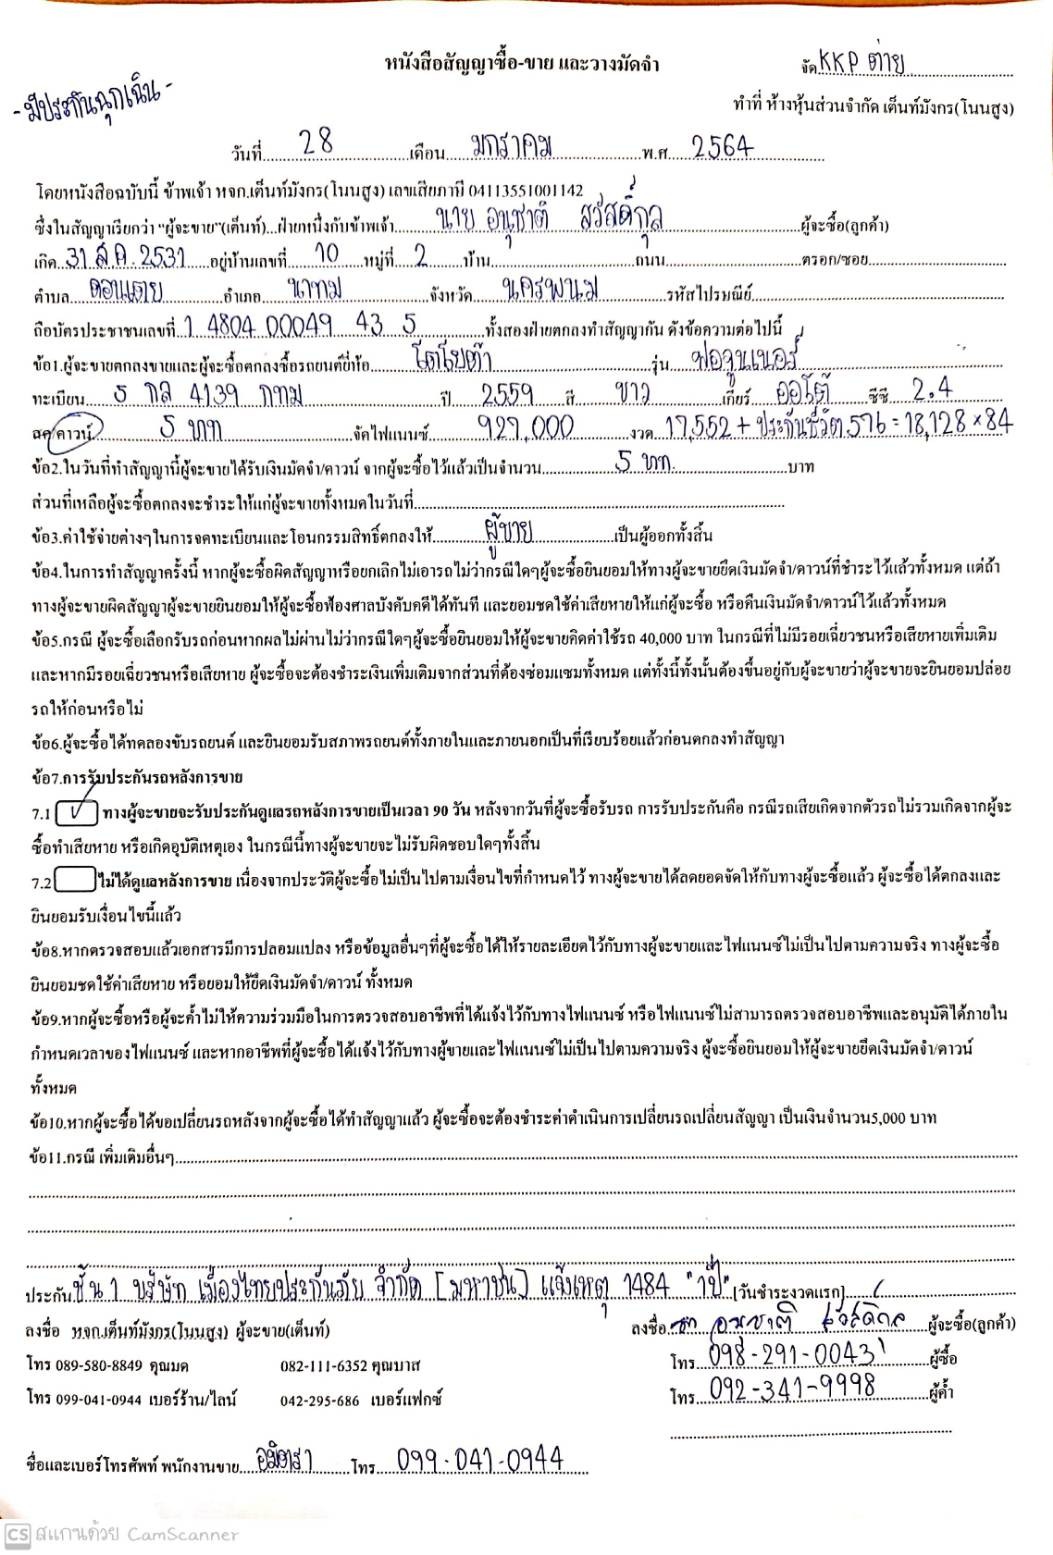 หนังสือสัญญาซื้อ-ขาย และวางมัดจำ
จัด KKP ต่าย
- มีประกันฉุกเฉิน -
ทำที่ ห้างหุ้นส่วนจำกัด เต็นท์มังกร(โนนสูง)
วันที่ 28 เดือน มกราคม พ.ศ. 2564
โดยหนังสือฉบับนี้ ข้าพเจ้า หจก.เต็นท์มังกร(โนนสูง) เลขเสียภาษี 04113551001142
ซึ่งในสัญญาเรียกว่า "ผู้จะขาย"(เต็นท์)...ฝ่ายหนึ่งกับข้าพเจ้า นาย อนุชาติ สวัสดิ์กุล ผู้จะซื้อ(ลูกค้า)
เกิด 31 ส.ค. 2531 อยู่บ้านเลขที่ 10 หมู่ที่ 2 บ้าน ถนน ตรอก/ซอย
ตำบล ดอนเตย อำเภอ นาทม จังหวัด นครพนม รหัสไปรษณีย์
ถือบัตรประชาชนเลขที่ 1 4804 00049 43 5 ทั้งสองฝ่ายตกลงทำสัญญากัน ดังข้อความต่อไปนี้
ข้อ1.ผู้จะขายตกลงขายและผู้จะซื้อตกลงซื้อรถยนต์ยี่ห้อ โตโยต้า รุ่น ฟอจูนเนอร์
ทะเบียน 5 กล 4139 กทม ปี 2559 สี ขาว เกียร์ ออโต้ ซีซี 2.4
ลด/ดาวน์ 5 บาท จัดไฟแนนซ์ 927,000 งวด 17,552 + ประกันชีวิต 576 = 18,128 x 84
ข้อ2.ในวันที่ทำสัญญานี้ผู้จะขายได้รับเงินมัดจำ/ดาวน์ จากผู้จะซื้อไว้แล้วเป็นจำนวน 5 บาท. บาท
ส่วนที่เหลือผู้จะซื้อตกลงจะชำระให้แก่ผู้จะขายทั้งหมดในวันที่
ข้อ3.ค่าใช้จ่ายต่างๆในการจดทะเบียนและโอนกรรมสิทธิ์ตกลงให้ ผู้ขาย เป็นผู้ออกทั้งสิ้น
ข้อ4.ในการทำสัญญาครั้งนี้ หากผู้จะซื้อผิดสัญญาหรือยกเลิกไม่เอารถไม่ว่ากรณีใดๆผู้จะซื้อยินยอมให้ทางผู้จะขายยึดเงินมัดจำ/ดาวน์ที่ชำระไว้แล้วทั้งหมด แต่ถ้า
ทางผู้จะขายผิดสัญญาผู้จะขายยินยอมให้ผู้จะซื้อฟ้องศาลบังคับคดีได้ทันที และยอมชดใช้ค่าเสียหายให้แก่ผู้จะซื้อ หรือคืนเงินมัดจำ/ดาวน์ไว้แล้วทั้งหมด
ข้อ5.กรณี ผู้จะซื้อเลือกรับรถก่อนหากผลไม่ผ่านไม่ว่ากรณีใดๆผู้จะซื้อยินยอมให้ผู้จะขายคิดค่าใช้รถ 40,000 บาท ในกรณีที่ไม่มีรอยเฉี่ยวชนหรือเสียหายเพิ่มเติม
และหากมีรอยเฉี่ยวชนหรือเสียหาย ผู้จะซื้อจะต้องชำระเงินเพิ่มเติมจากส่วนที่ต้องซ่อมแซมทั้งหมด แต่ทั้งนี้ทั้งนั้นต้องขึ้นอยู่กับผู้จะขายว่าผู้จะขายจะยินยอมปล่อย
รถให้ก่อนหรือไม่
ข้อ6.ผู้จะซื้อได้ทดลองขับรถยนต์ และยินยอมรับสภาพรถยนต์ทั้งภายในและภายนอกเป็นที่เรียบร้อยแล้วก่อนตกลงทำสัญญา
ข้อ7.การรับประกันรถหลังการขาย
7.1 ✓ ทางผู้จะขายจะรับประกันดูแลรถหลังการขายเป็นเวลา 90 วัน หลังจากวันที่ผู้จะซื้อรับรถ การรับประกันคือ กรณีรถเสียเกิดจากตัวรถไม่รวมเกิดจากผู้จะ
ซื้อทำเสียหาย หรือเกิดอุบัติเหตุเอง ในกรณีนี้ทางผู้จะขายจะไม่รับผิดชอบใดๆทั้งสิ้น
7.2 ไม่ได้ดูแลหลังการขาย เนื่องจากประวัติผู้จะซื้อไม่เป็นไปตามเงื่อนไขที่กำหนดไว้ ทางผู้จะขายได้ลดยอดจัดให้กับทางผู้จะซื้อแล้ว ผู้จะซื้อได้ตกลงและ
ยินยอมรับเงื่อนไขนี้แล้ว
ข้อ8.หากตรวจสอบแล้วเอกสารมีการปลอมแปลง หรือข้อมูลอื่นๆที่ผู้จะซื้อได้ให้รายละเอียดไว้กับทางผู้จะขายและไฟแนนซ์ไม่เป็นไปตามความจริง ทางผู้จะซื้อ
ยินยอมชดใช้ค่าเสียหาย หรือยอมให้ยึดเงินมัดจำ/ดาวน์ ทั้งหมด
ข้อ9.หากผู้จะซื้อหรือผู้จะค้ำไม่ให้ความร่วมมือในการตรวจสอบอาชีพที่ได้แจ้งไว้กับทางไฟแนนซ์ หรือไฟแนนซ์ไม่สามารถตรวจสอบอาชีพและอนุมัติได้ภายใน
กำหนดเวลาของไฟแนนซ์ และหากอาชีพที่ผู้จะซื้อได้แจ้งไว้กับทางผู้ขายและไฟแนนซ์ไม่เป็นไปตามความจริง ผู้จะซื้อยินยอมให้ผู้จะขายยึดเงินมัดจำ/ดาวน์
ทั้งหมด
ข้อ10.หากผู้จะซื้อได้ขอเปลี่ยนรถหลังจากผู้จะซื้อได้ทำสัญญาแล้ว ผู้จะซื้อจะต้องชำระค่าดำเนินการเปลี่ยนรถเปลี่ยนสัญญา เป็นเงินจำนวน5,000 บาท
ข้อ11.กรณี เพิ่มเติมอื่นๆ
ประกัน ชั้น 1 บริษัท เมืองไทยประกันภัย จำกัด [มหาชน] แจ้งเหตุ 1484 "1ปี" [วันชำระงวดแรก]
ลงชื่อ หจก.เต็นท์มังกร(โนนสูง) ผู้จะขาย(เต็นท์)
ลงชื่อ อนุชาติ สวัสดิกุล ผู้จะซื้อ(ลูกค้า)
โทร 089-580-8849 คุณมด 082-111-6352 คุณบาส
โทร 098-291-0043 ผู้ซื้อ
โทร 099-041-0944 เบอร์ร้าน/ไลน์ 042-295-686 เบอร์แฟกซ์
โทร 092-341-9998 ผู้ค้ำ
ชื่อและเบอร์โทรศัพท์ พนักงานขาย โทร 099-041-0944
CS สแกนด้วย CamScanner